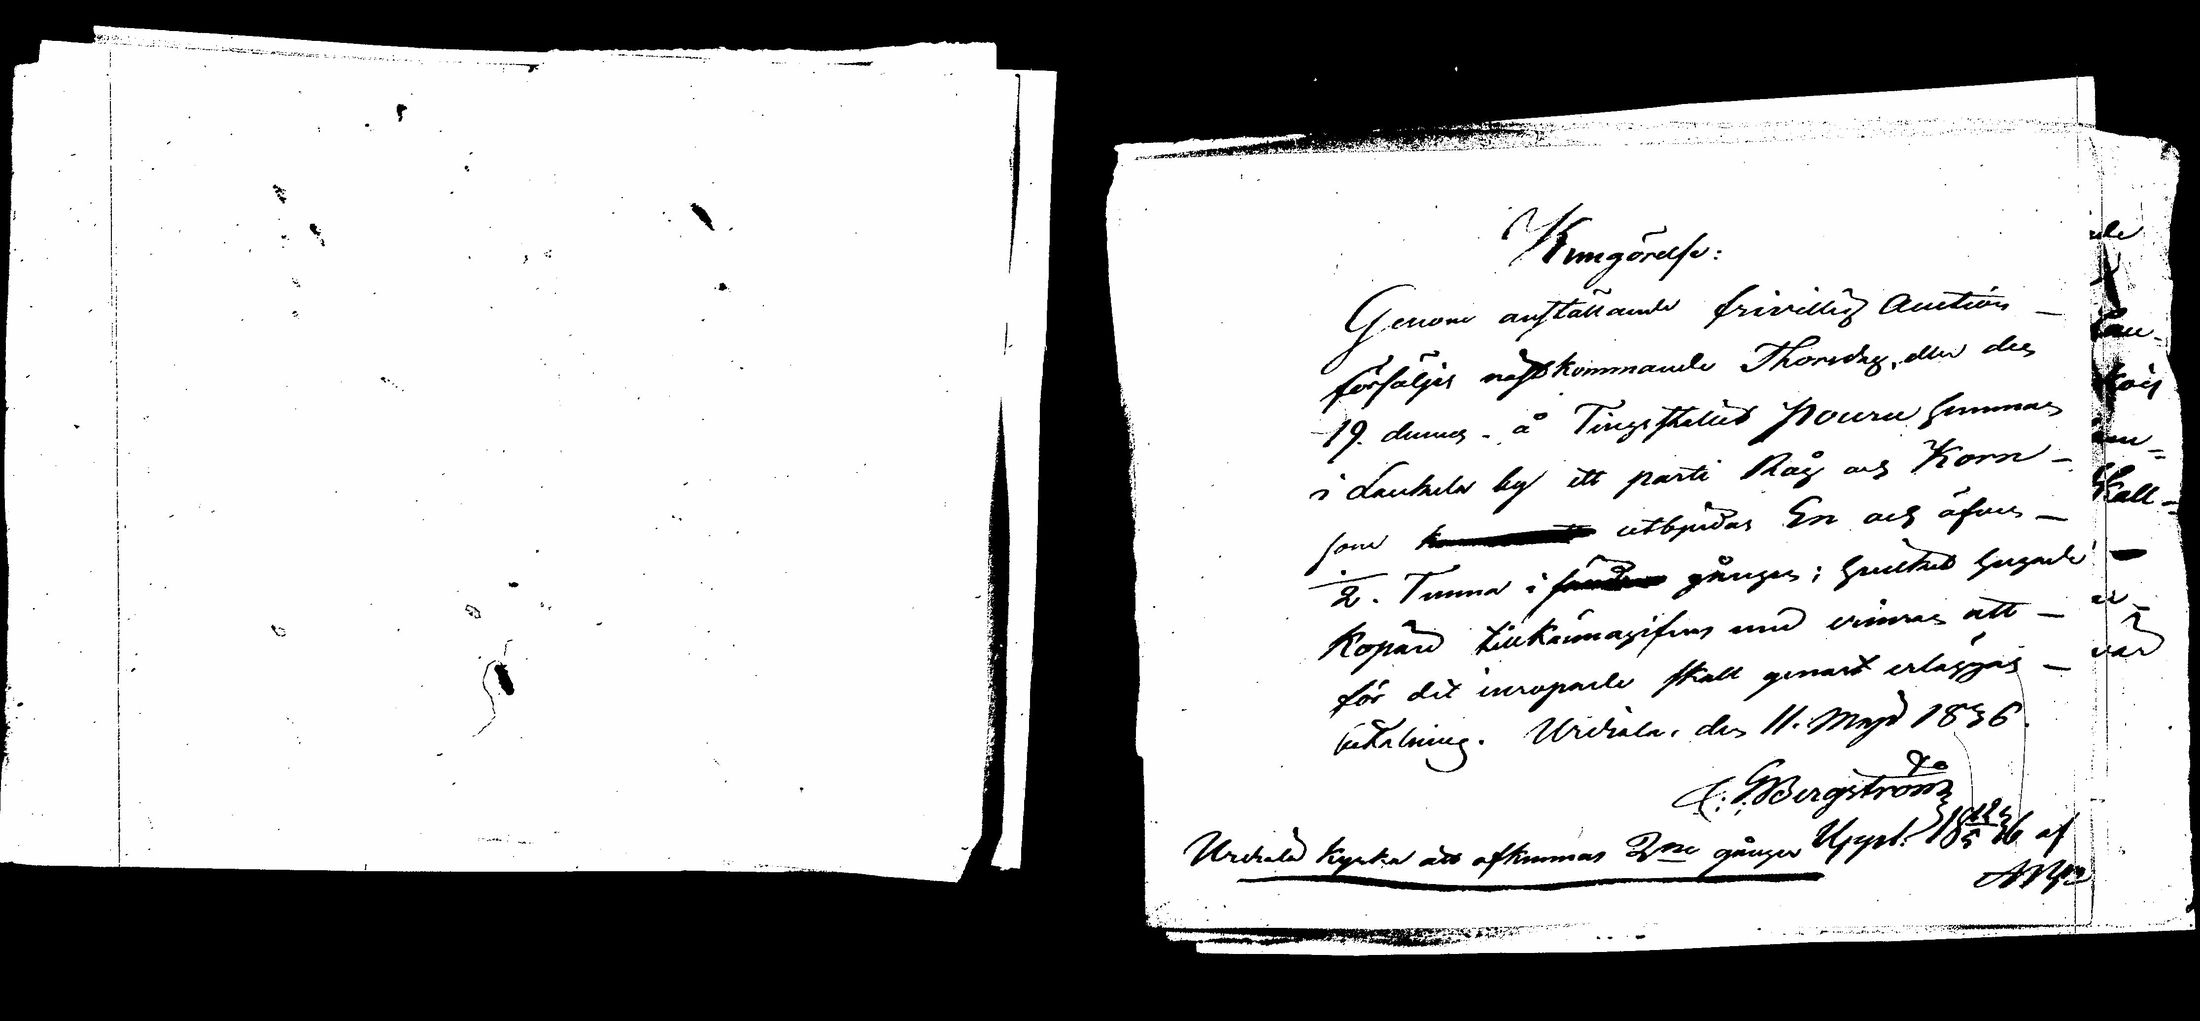 Kungörelse:
Genom anställande frivillig Auction
försäljes nästkommande Thorsdag, eller den
19. dennes å Tingstället Pouru hemman
i Laukela by ett parti Råg och Korn
som utbjudas En och äfven
2. Tunna i gången; hvilket hugade
Köpare tillkännagifves med erinran att
för det inropade skall genast erläggas
betalning. Urdiala, den 11. Maji 1836.
C: G: Bergström
Urdiala Kyrka att afkunnas 2ne gånger Uppl: af
ade
Lau-
skall